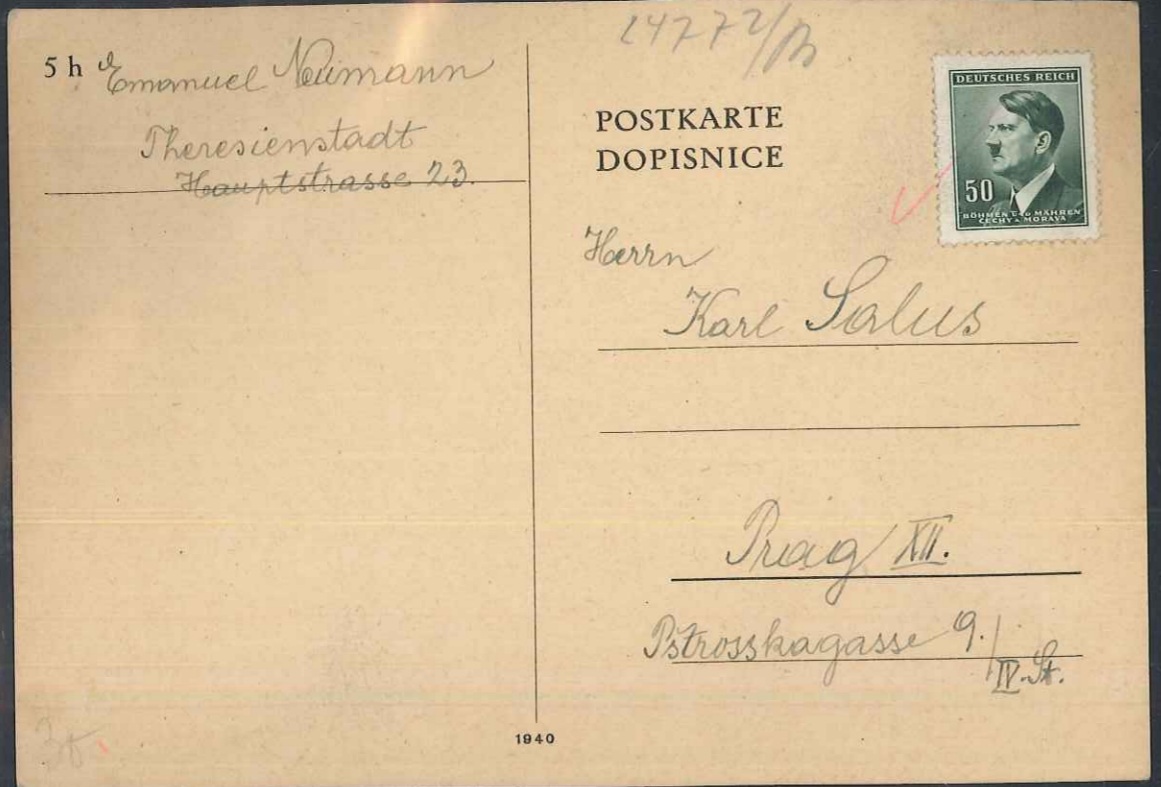 5 h Emanuel Neumann
Theresienstadt
Hauptstrasse 23.
POSTKARTE
DOPISNICE
DEUTSCHES REICH
50
BÖHMEN UND MÄHREN
ČECHY A MORAVA
Herrn
Karl Salus
Prag XII.
Pstrosskagasse 9./
IV. St.
1940